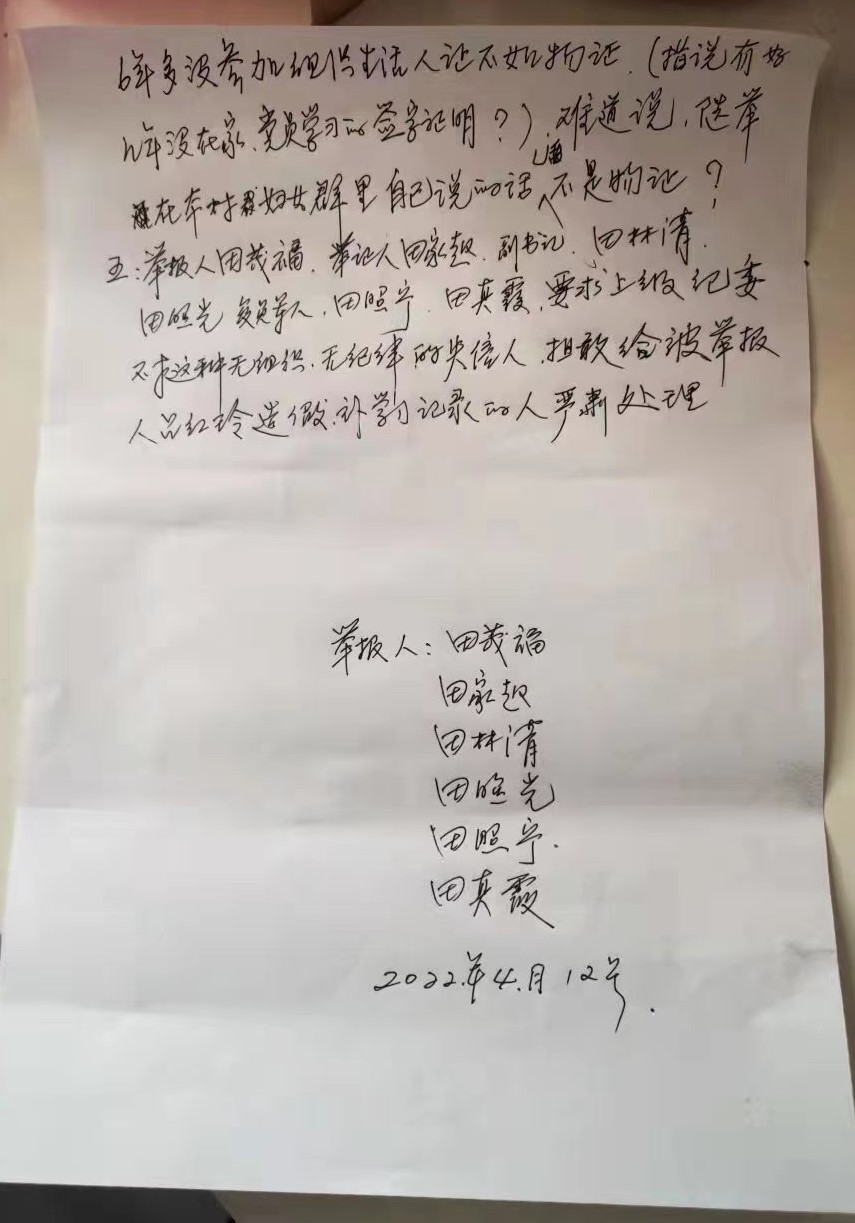 6年多没参加组织生活人证不如物证.(指说有好
几年没在家、党员学习的签字证明?)难道说,选举
在本村妇女群里自己说的话不是物证?
五:举报人田茂福.举证人田家起.副书记、田林清.
田照光 复员军人,田照宁.田真霞,要求上级纪委
对这种无组织.无纪律的失信人.担敢给被举报
人吕红玲造假.补学习记录的人严肃处理
举报人:田茂福
田家起
田林清
田照光
田照宁.
田真霞
2022.年4.月12号.